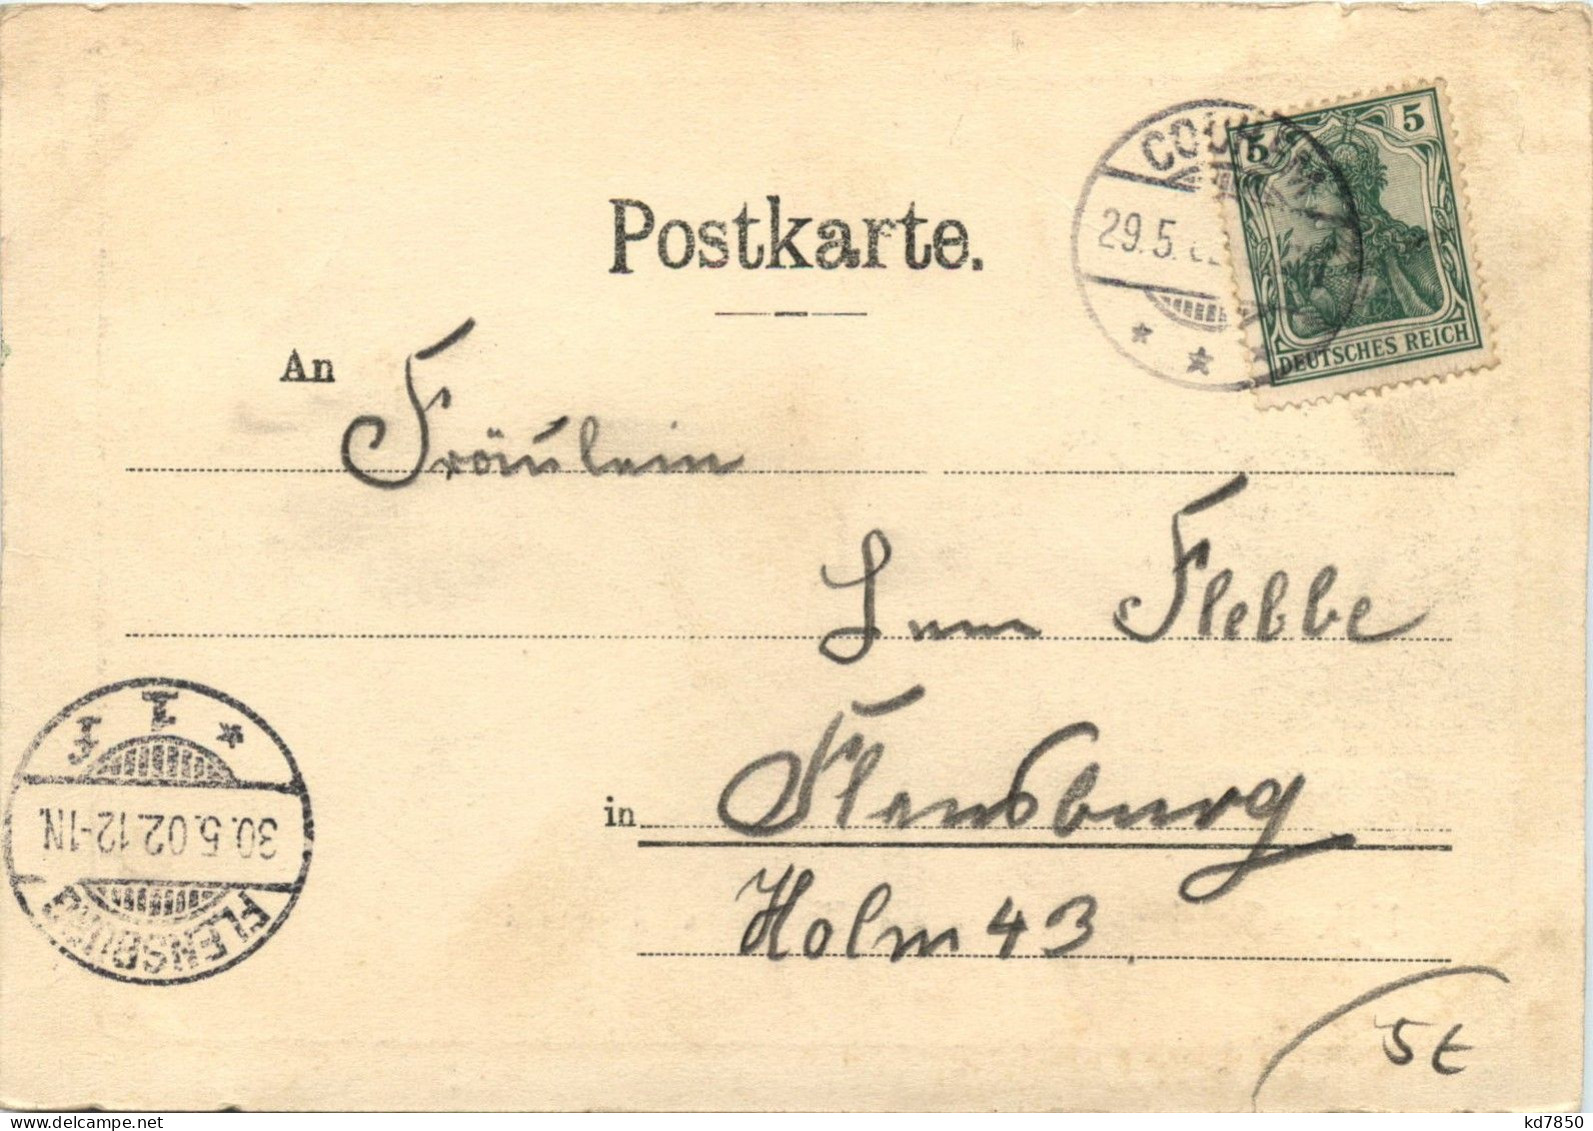 Postkarte.
5 5
DEUTSCHES REICH
29.5.
An Fräulein
Flebbe
in Flensburg
Holm 43
* 1 f f
30.5.02.12-1N.
FLENSBURG
5 t
kd7850